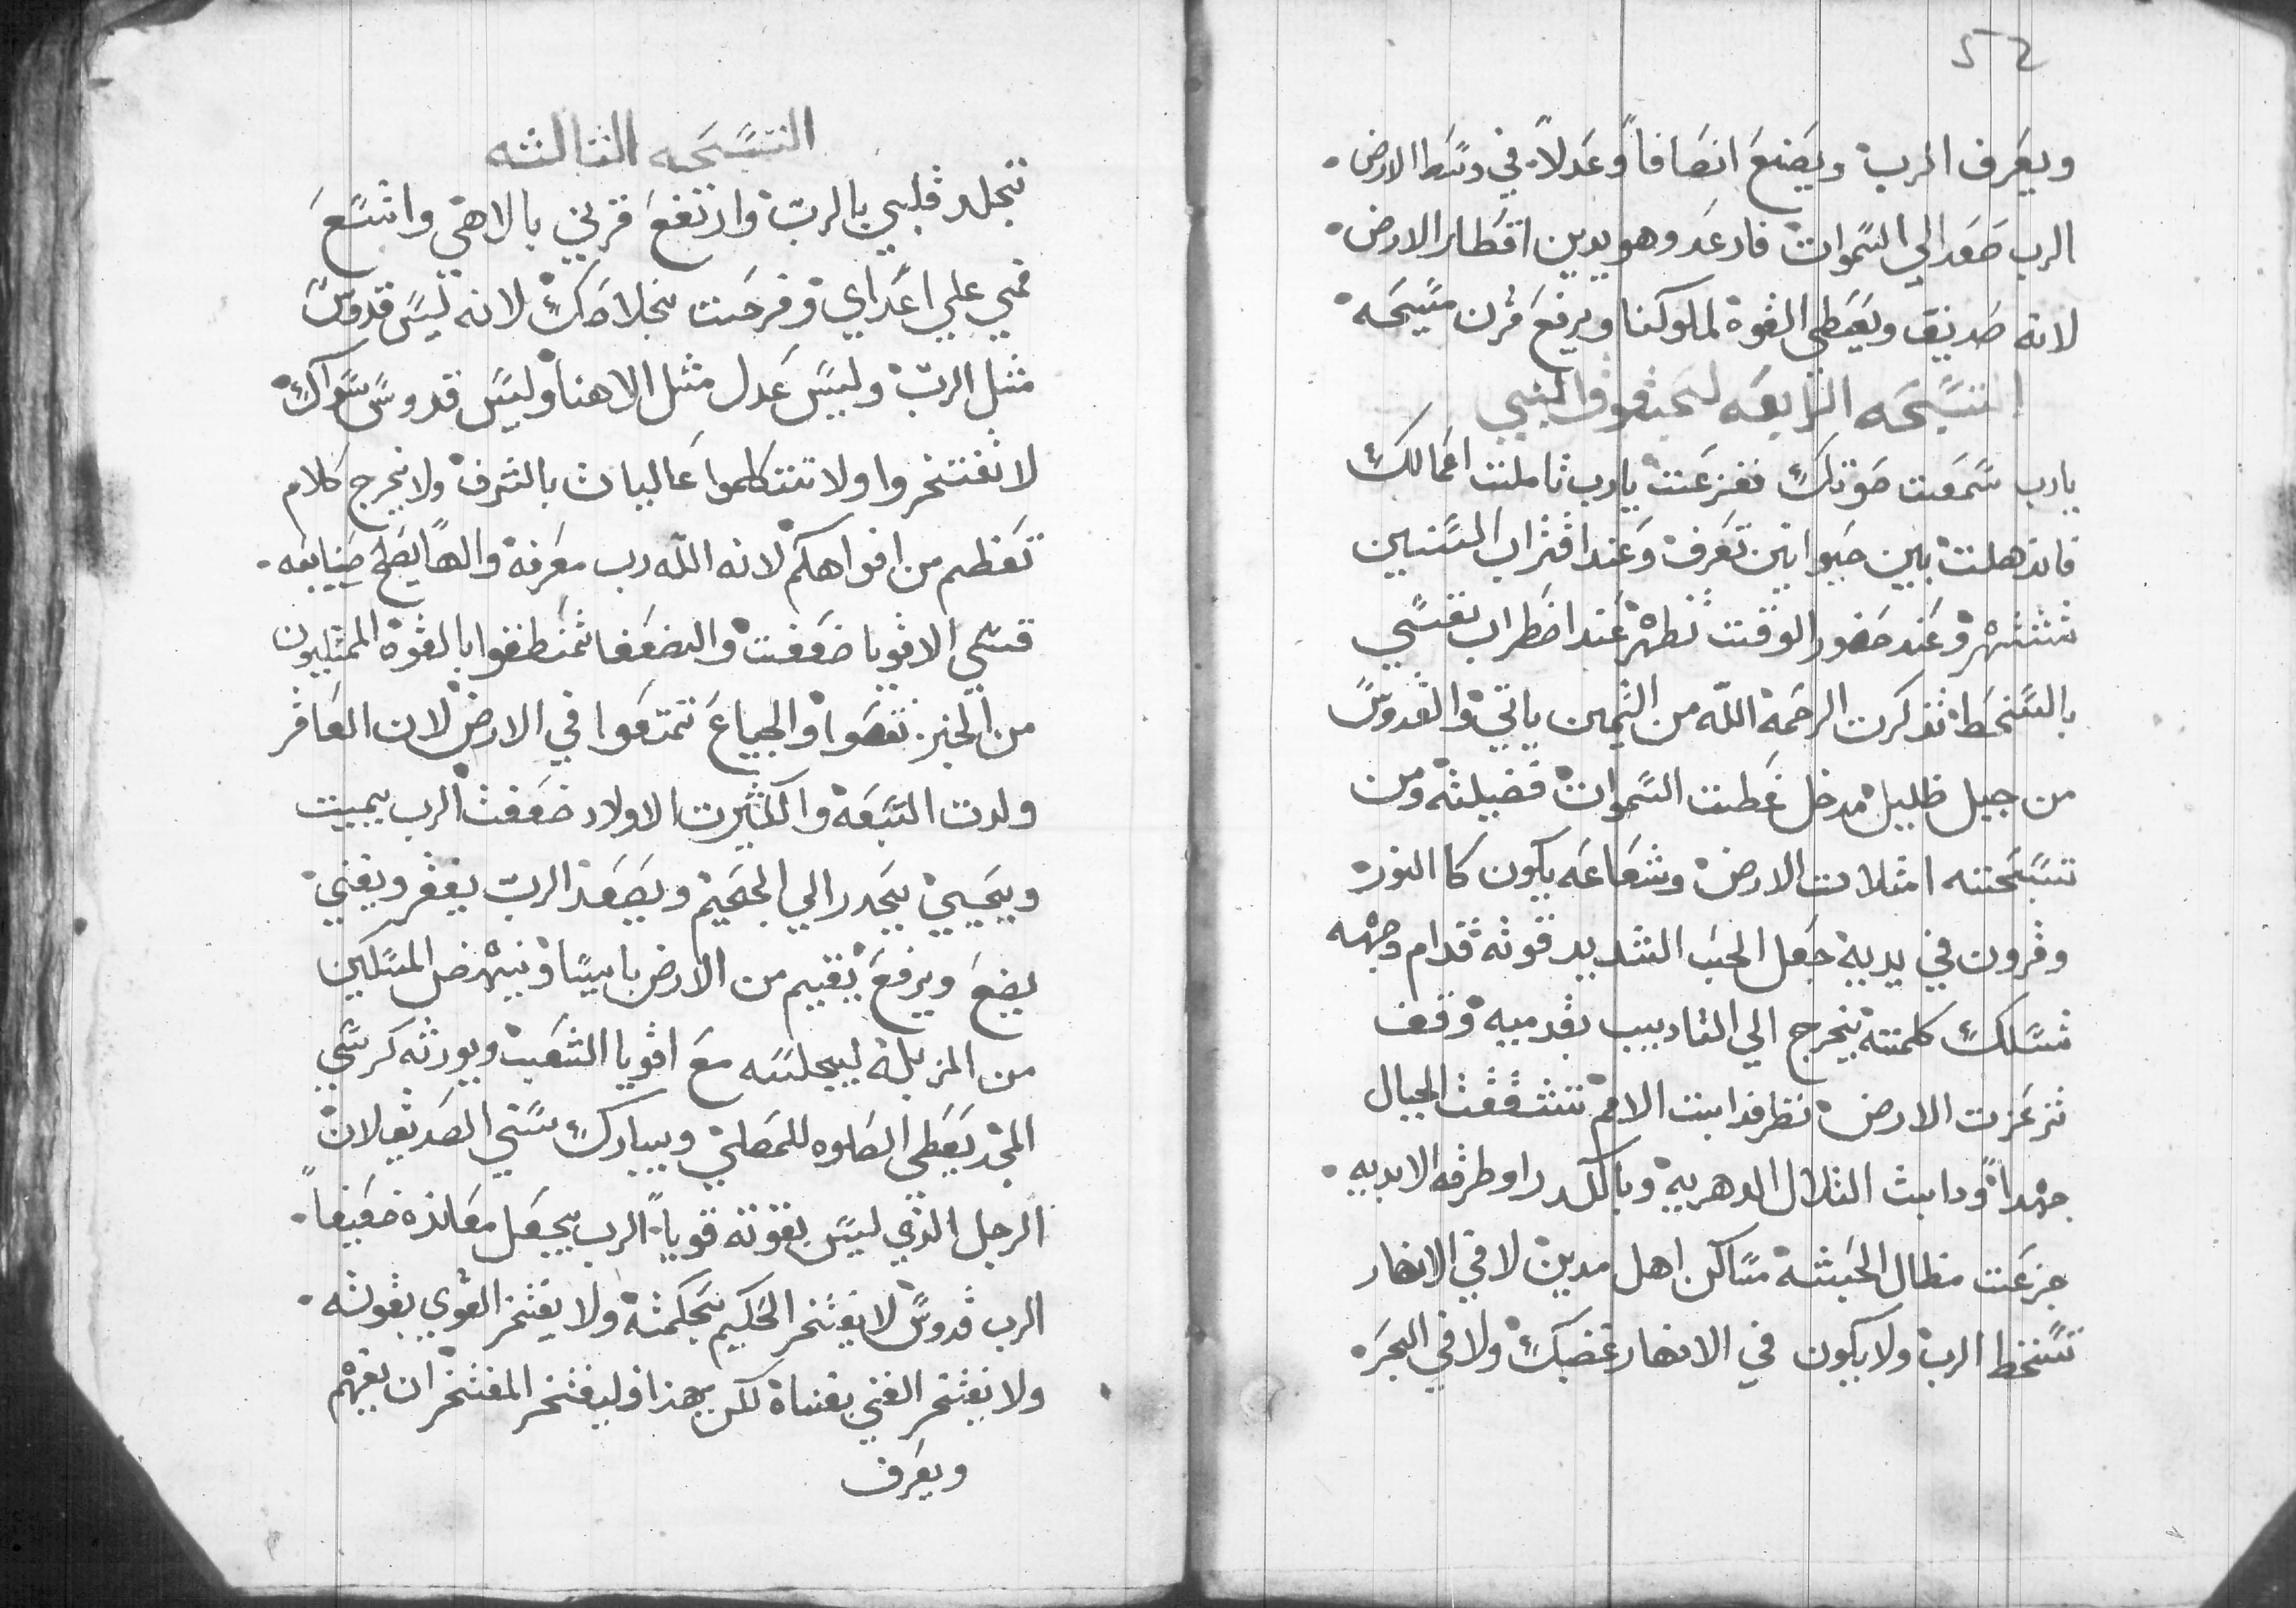 التسبحه الثالثه
تجلد قلبي بالرب وارتفع قرني بالاهي واتسع
فمي علي اعداي وفرحت بخلاصك لانه ليس قدوس
مثل الرب وليس عدل مثل الاهنا وليس قدوس سواك
لا تفتخروا ولا تتكلموا عاليات بالشرف ولا يخرج كلام
تعظم من افواهكم لانه الله رب معرفة والهاً يصلح صنايعه
قسي الاقويا ضعفت والضعفا تمنطقوا بالقوة الممتليون
من الخبز نقصوا والجياع تمتعوا في الارض لان العاقر
ولدت السبعة والكثيرت الاولاد ضعفت الرب يميت
ويحيي يحدر الي الجحيم ويصعد الرب يفقر ويغني
يضع ويرفع يقيم من الارض بايسا وينهض المسكين
من المزبلة ليجلسه مع اقويا الشعب ويورثه كرسي
المجد يعطي الصلوه للمصلي ويبارك سني الصديق لان
الرجل الذي ليس بقوته قوياً الرب يجعل معانده ضعيفاً
الرب قدوس لا يفتخر الحكيم بحكمته ولا يفتخر القوي بقوته
ولا يفتخر الغني بغناة لكن بهذا فليفتخر المفتخر ان يفهم
ويعرف
52
ويعرف الرب ويصنع انصافاً وعدلاً في وسط الارض
الرب صعد الي السموات فارعد وهو يدين اقطار الارض
لانه صديق ويعطي القوة لملوكنا ويرفع قرن مسيحه
التسبحه الرابعه لحبقوق النبي
يارب سمعت صوتك ففزعت يارب تاملت اعمالك
فاندهلت بين حيوانين تعرف وعند اقتراب السنين
تشتهر وعند حضور الوقت تظهر عند اضطراب نفسي
بالسخط تذكرت الرحمة الله من التيمن ياتي والقدوس
من جبل ظليل مدغل غطت السموات فضيلته ومن
تسبحته امتلات الارض وشعاعه يكون كا النور
وقرون في يديه جعل الحب الشديد قوته قدام وجهه
تسلك كلمته يخرج الي التاديب بقدميه وقف
تزعزت الارض نظر فدابت الامم تشققت الجبال
جهداً ودابت التلال الدهرية وبالكد راو طرقه الابديه
جزعت مظال الحبشة مساكن اهل مدين لا في الانهار
تسخط الرب ولا يكون في الانهار غضبك ولا في البحر